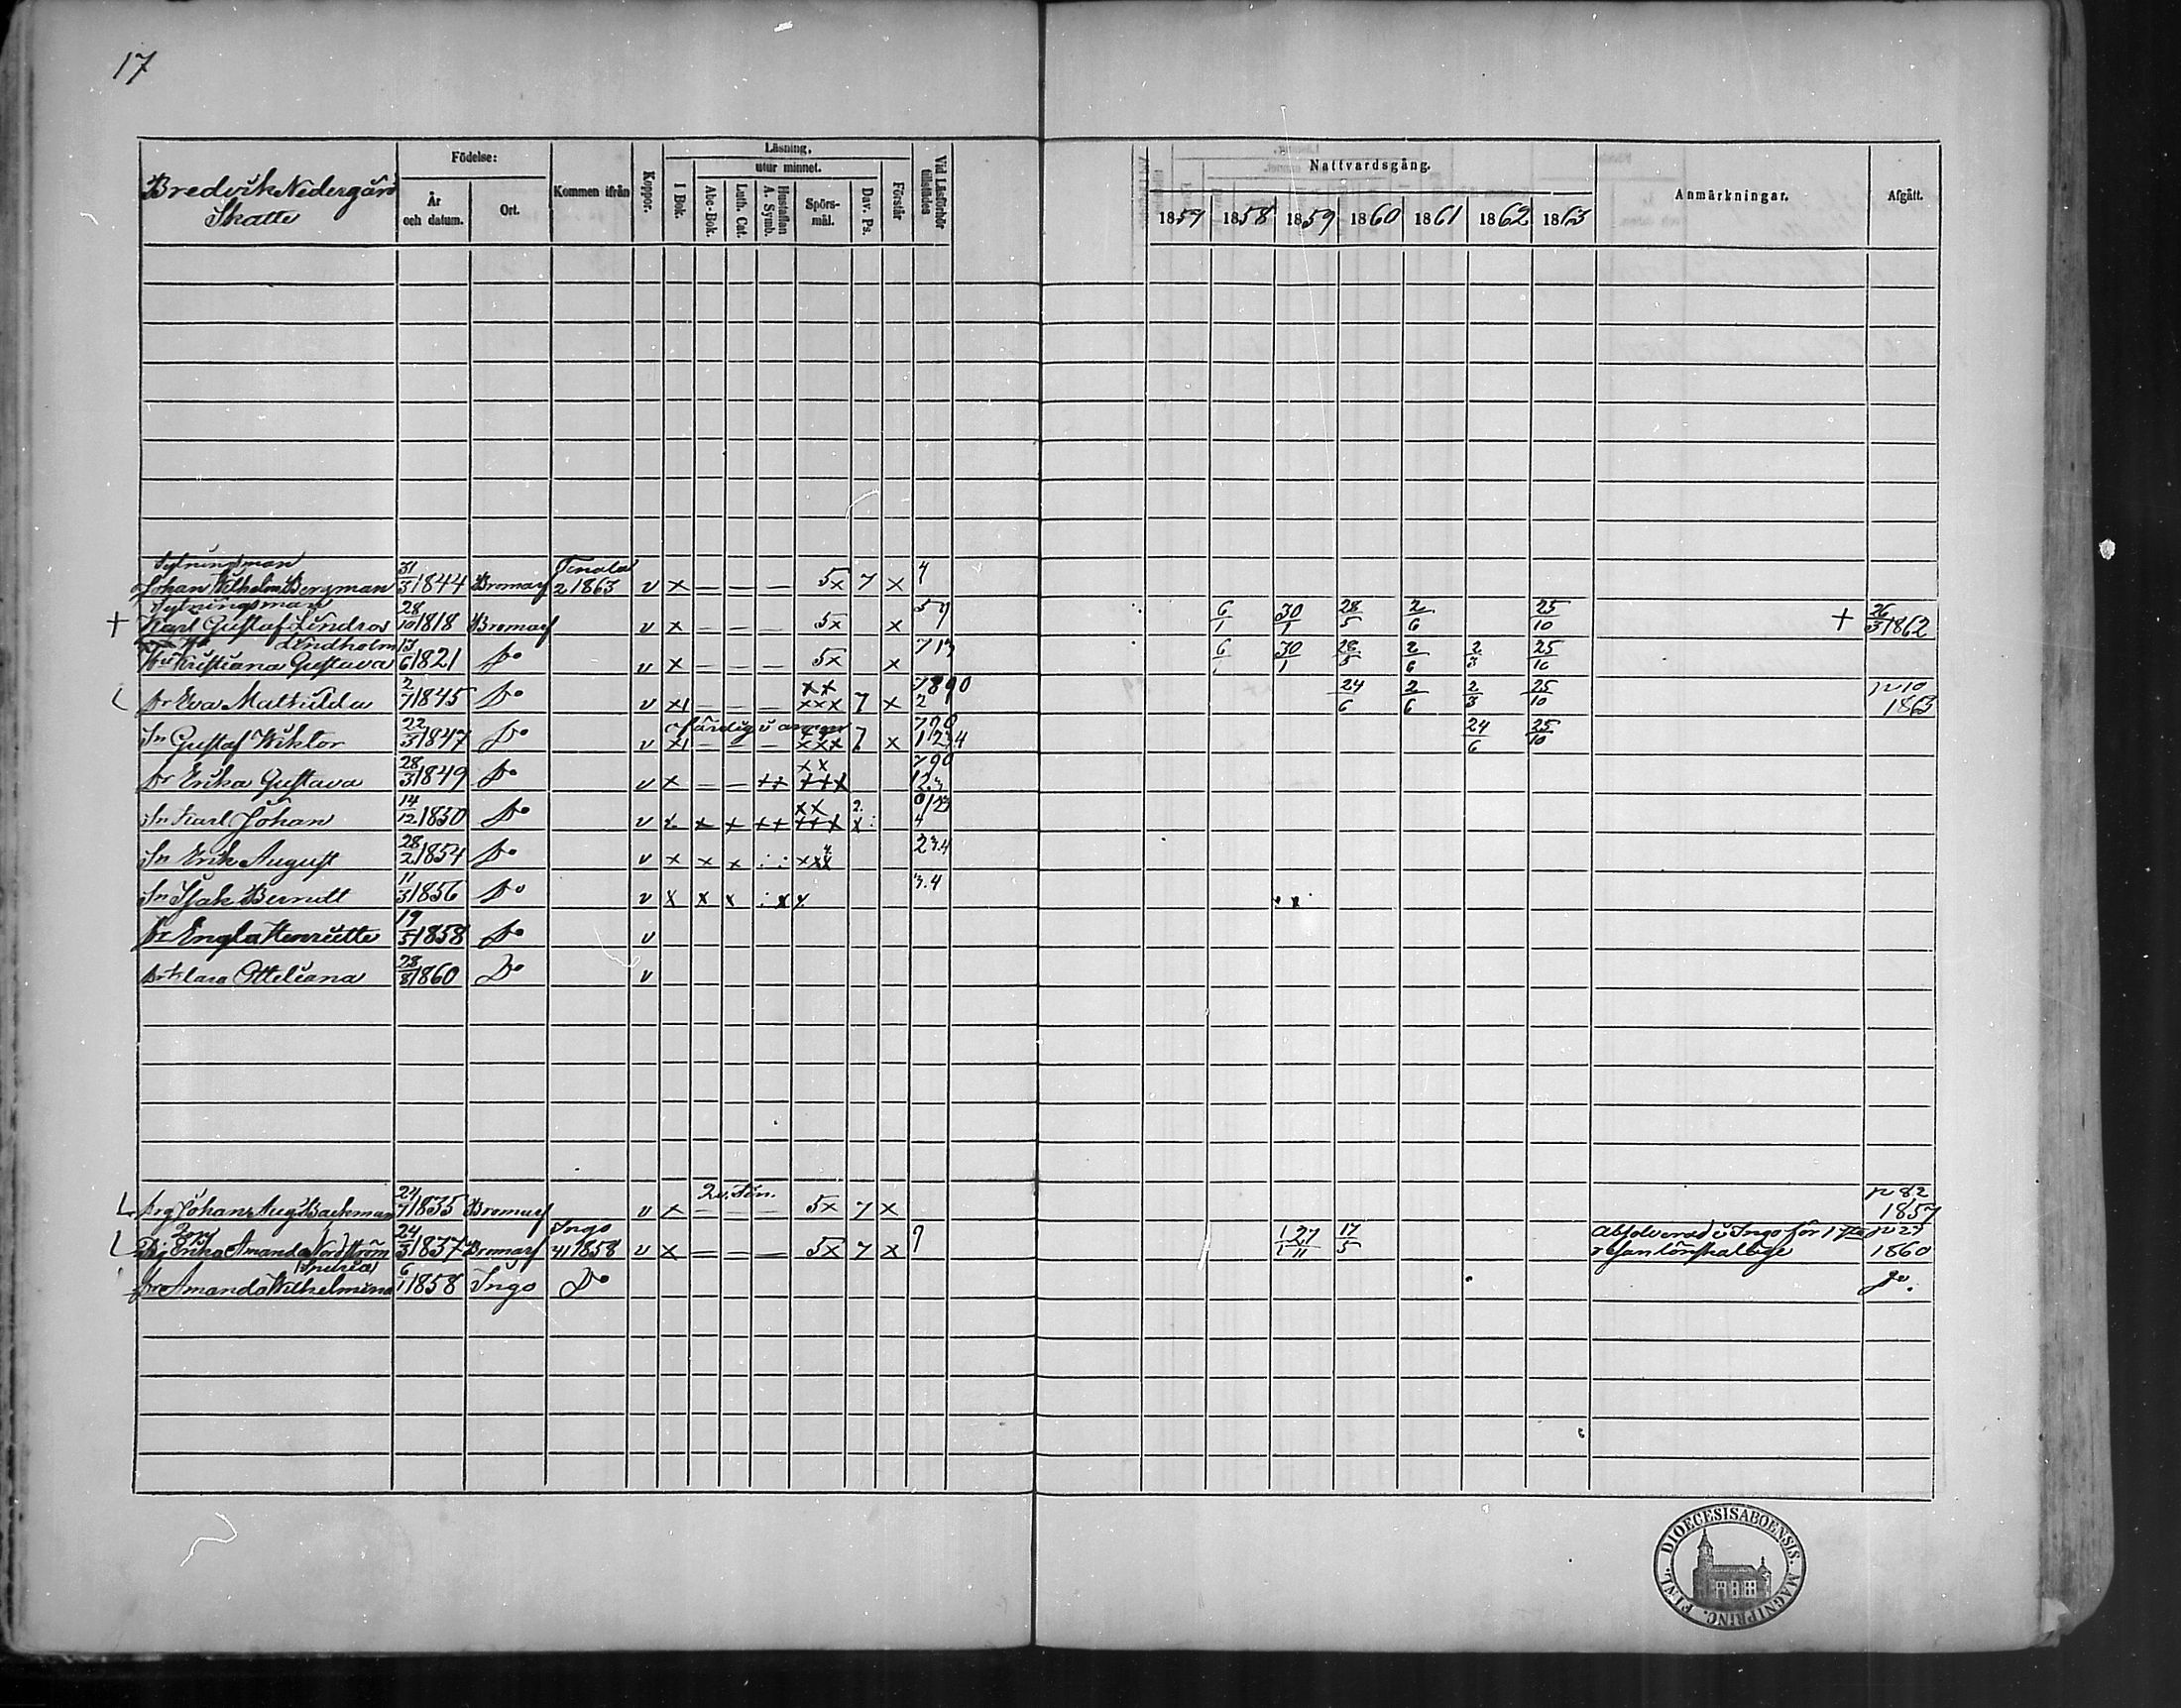 17
Bredvik Nedergård
Skatte
Födelse:
År och datum.
Ort.
Kommen ifrån
Koppor.
Läsning.
I Bok.
utur minnet.
Abc-Bok.
Luth. Cat.
Hustaflan A. Symb.
Spörsmål.
Dav. Ps.
Förstår
Vid Läsförhör tillstädes
Nattvardsgång.
1857 1858 1859 1860 1861 1862 1863
Anmärkningar.
Afgått.
Sytningsman Tenala
Johan Wilhelm Bergman 31/3 1844 Bromarf 2 1863 v x — — — 5x 7 x 4
Sytningsman
+ Karl Gustaf Lindros 28/10 1818 Bromarf v x — — — 5x x 5 9 6/1 30/1 28/5 2/6 25/10 + 26/3 1862
Lindholm
Hu Kristiana Gustava 13/6 1821 Do v x — — — 5x x 7 13 6/1 30/1 28/5 2/6 2/3 25/10
Dr Eva Mathilda 2/7 1845 Do v x1 — — — xx xxx 7 x 7890 2 24/6 2/6 2/3 25/10 p 10 1863
Sn Gustaf Wiktor 22/3 1847 Do v x1 — — — xxx 7 x 790 1234 24/6 25/10
Dr Erika Gustava 28/3 1849 Do v x — — ++ xx +++ 790 12.3
Sn Karl Johan 14/12 1850 Do v x x + ++ xx +++ 2. x: 0123 4
Sn Erik August 28/2 1854 Do v x x x : : xxx 23.4
Sn Isak Berndt 11/3 1856 Do v x x x : x x 3.4
Dr Engla Henriette 19/5 1858 Do v
Dr Klara Otteliana 28/8 1860 Do v
Drg Johan Aug Backman 24/7 1835 Bromarf v x — — — 5x 7 x p 82 1857
Erika Amanda Nordström 24/3 1837 Bromarf Ingo 41 1858 v x — — — 5x 7 x 9 1/1 27/11 17/5 Absolverad i Ingo för 1 p 27
lönskaläge 1860
(Spuria)
Dr Amanda Wilhelmina 6/1 1858 Ingo Do Do.
FINL. DIOECESIS ABOENSIS. MAGNI PRINC.